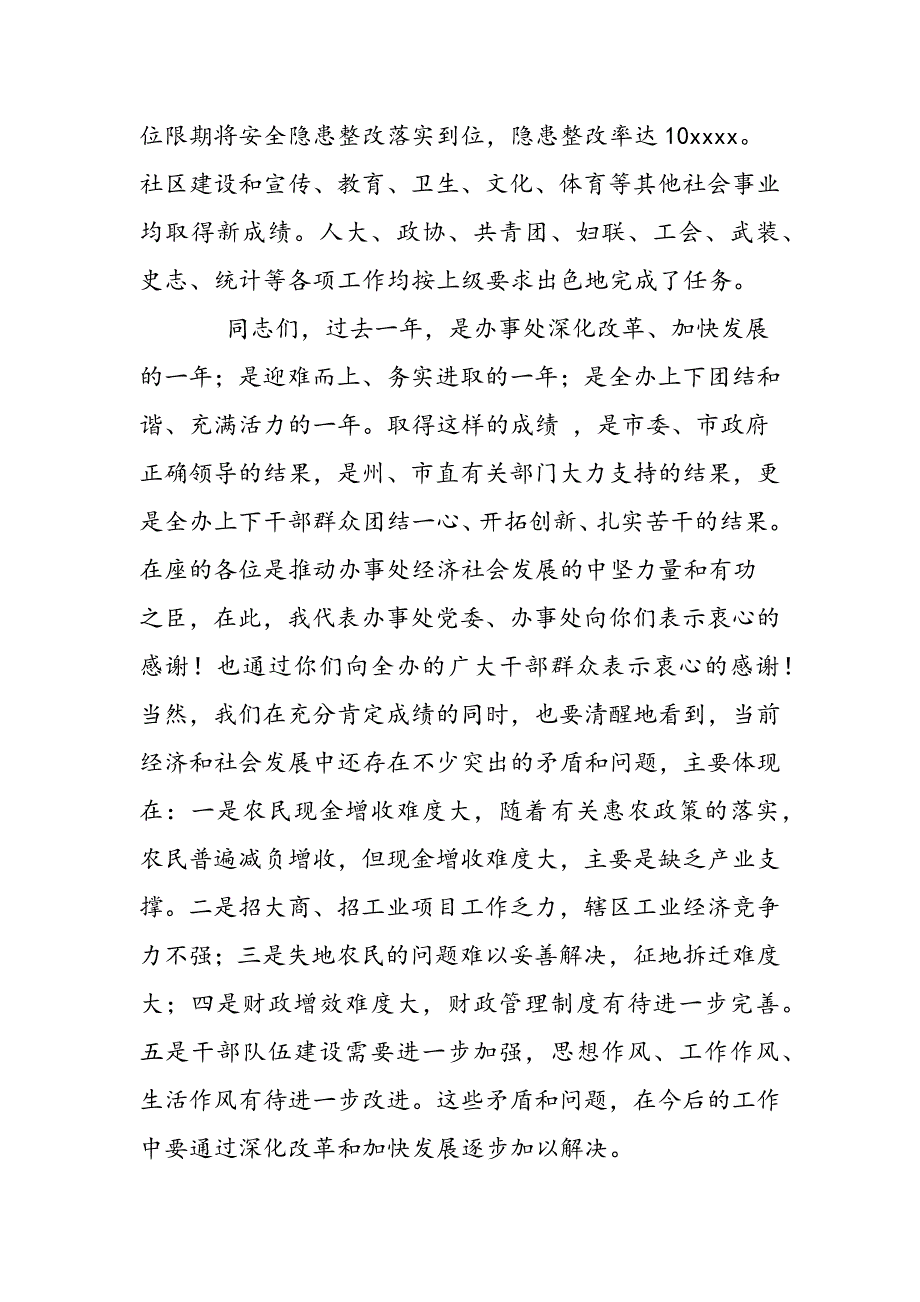 位限期将安全隐患整改落实到位，隐患整改率达 10xxxx。
社区建设和宣传、教育、卫生、文化、体育等其他社会事业
均取得新成绩。人大、政协、共青团、妇联、工会、武装、
史志、统计等各项工作均按上级要求出色地完成了任务。
同志们，过去一年，是办事处深化改革、加快发展
的一年；是迎难而上、务实进取的一年；是全办上下团结和
谐、充满活力的一年。取得这样的成绩 ，是市委、市政府
正确领导的结果，是州、市直有关部门大力支持的结果，更
是全办上下干部群众团结一心、开拓创新、扎实苦干的结果。
在座的各位是推动办事处经济社会发展的中坚力量和有功
之臣，在此，我代表办事处党委、办事处向你们表示衷心的
感谢！也通过你们向全办的广大干部群众表示衷心的感谢！
当然，我们在充分肯定成绩的同时，也要清醒地看到，当前
经济和社会发展中还存在不少突出的矛盾和问题，主要体现
在：一是农民现金增收难度大，随着有关惠农政策的落实，
农民普遍减负增收，但现金增收难度大，主要是缺乏产业支
撑。二是招大商、招工业项目工作乏力，辖区工业经济竞争
力不强；三是失地农民的问题难以妥善解决，征地拆迁难度
大；四是财政增效难度大，财政管理制度有待进一步完善。
五是干部队伍建设需要进一步加强，思想作风、工作作风、
生活作风有待进一步改进。这些矛盾和问题，在今后的工作
中要通过深化改革和加快发展逐步加以解决。